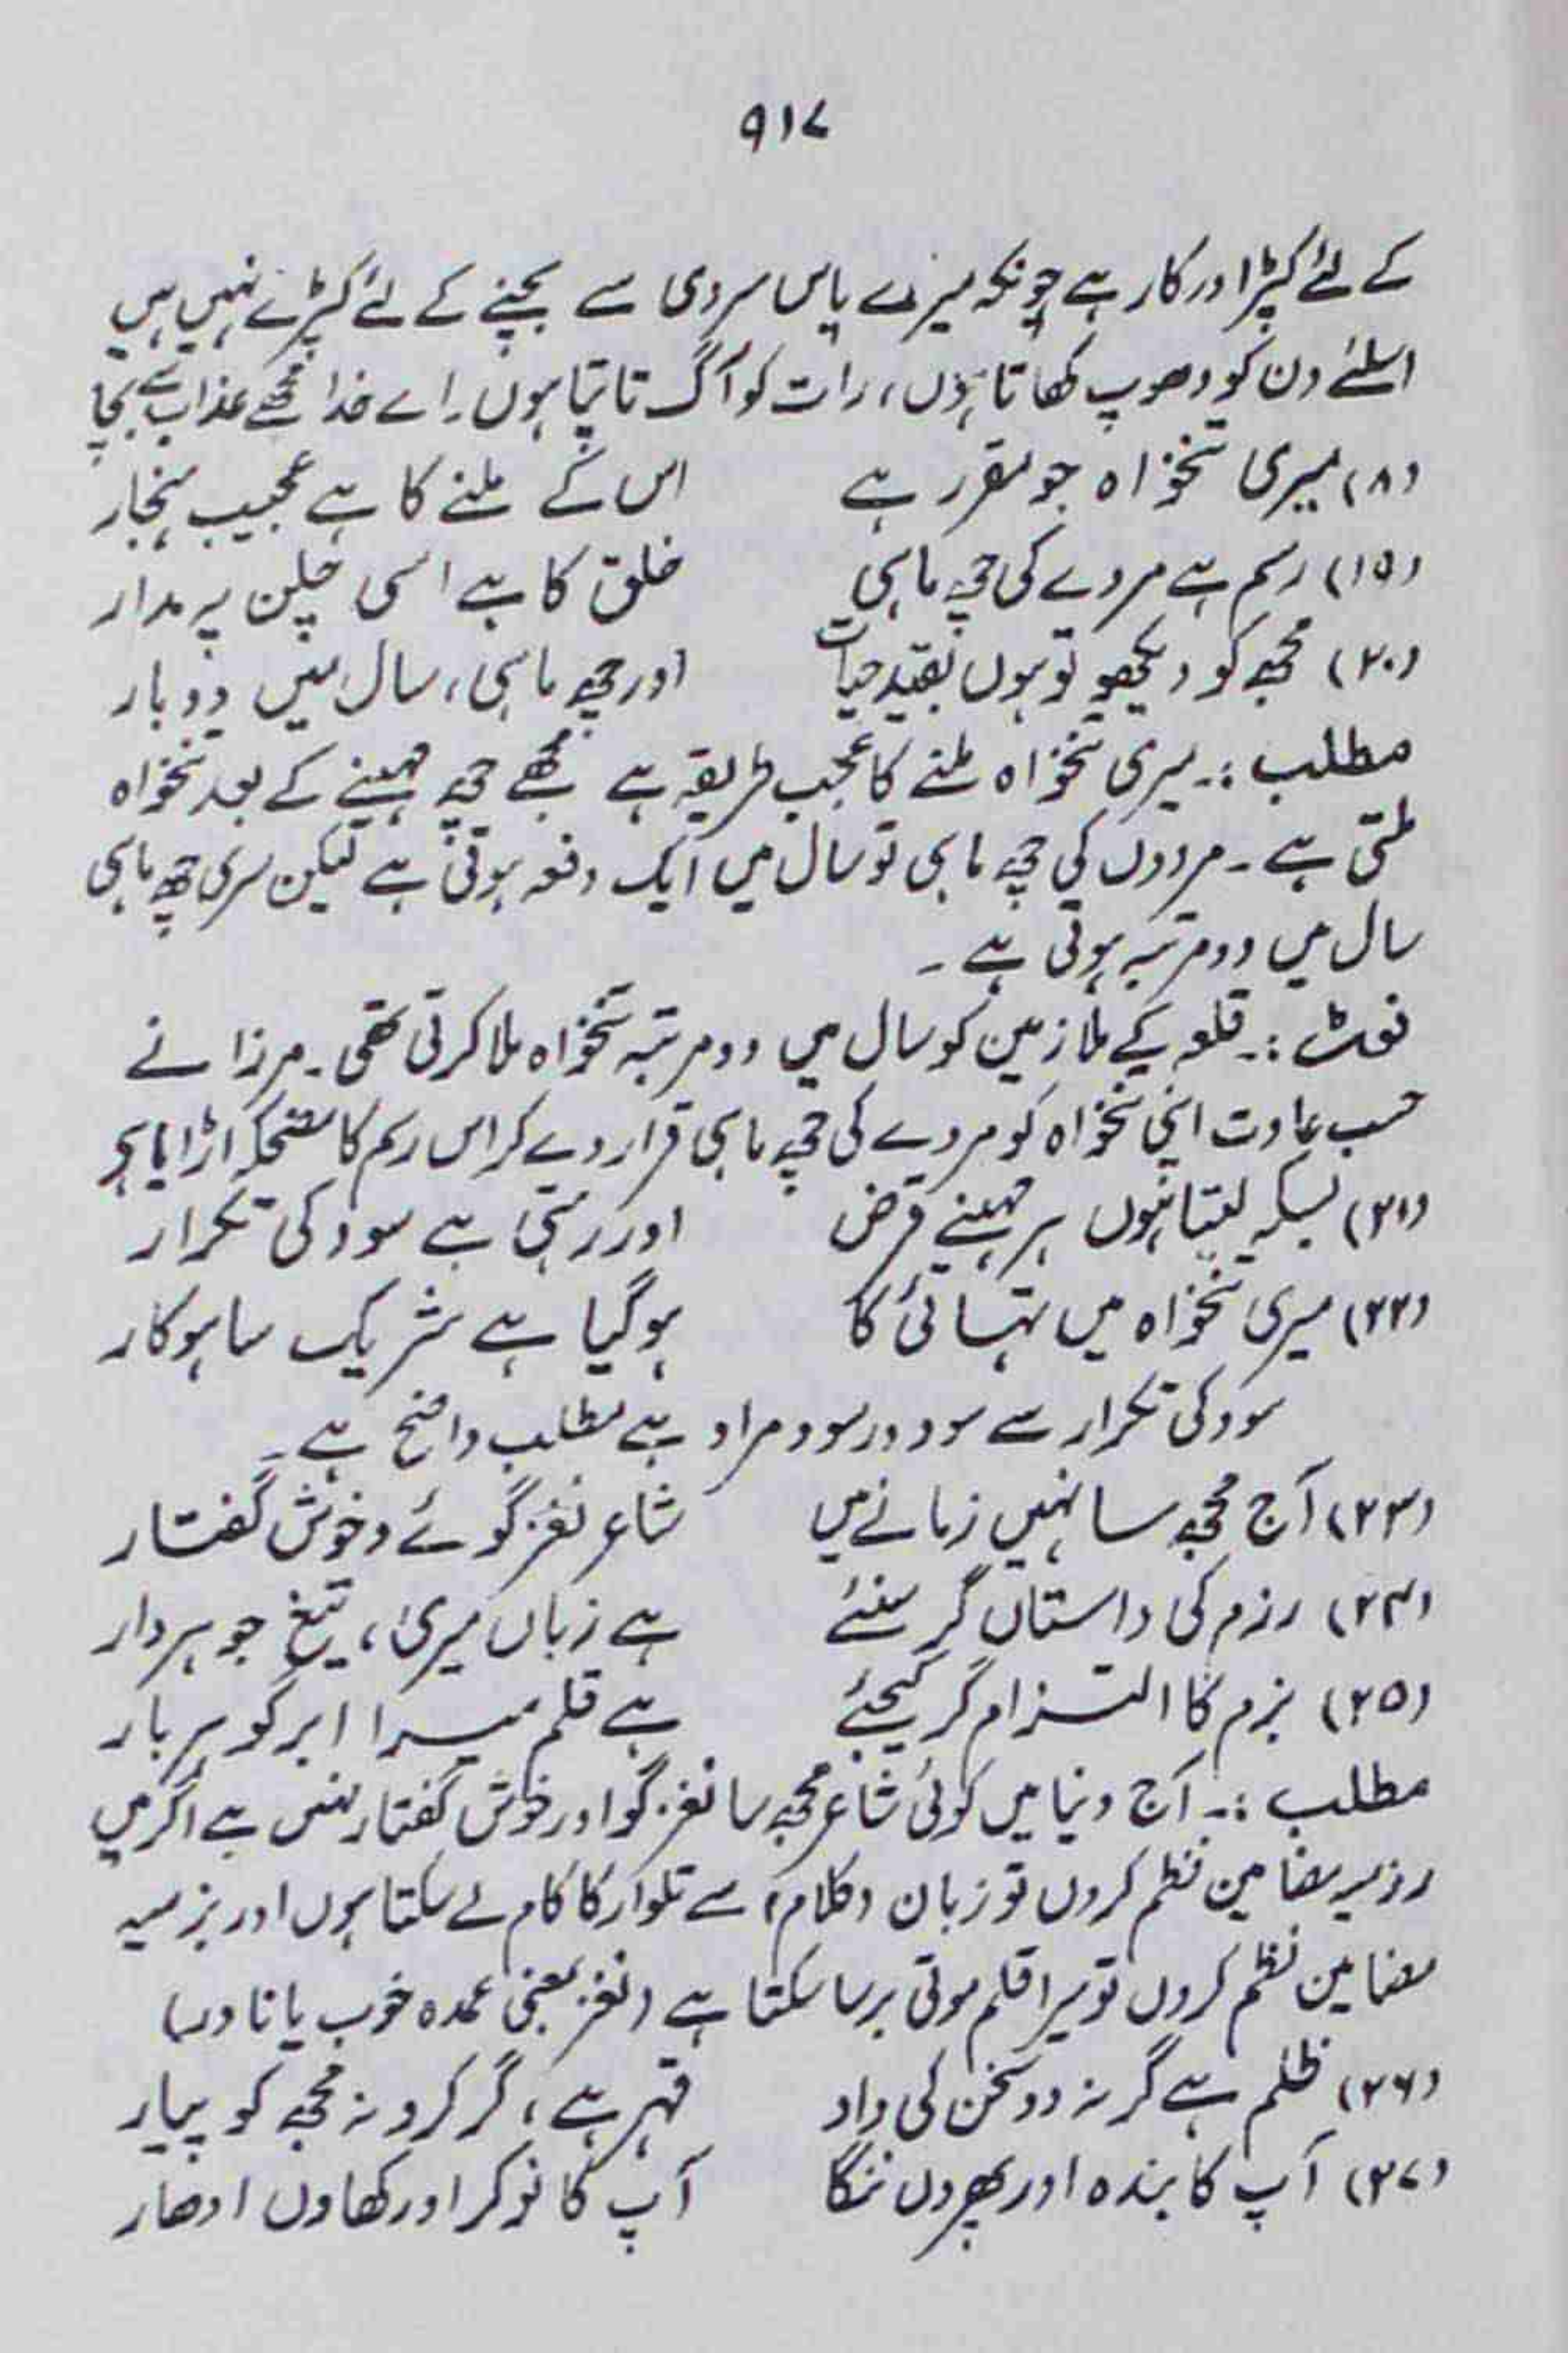 ۹۱۷
کے لئے کپڑا درکار ہے چونکہ میرے پاس سردی سے بچنے کے لئے کپڑے نہیں ہیں
اسلئے دن کو دھوپ کھاتا ہوں، رات کو آگ تاپتا ہوں۔ اے خدا مجھے عذاب سے بچا
(۱۸) میری تنخواہ جو مقرر ہے اس کے ملنے کا ہے عجیب ہنجار
(۱۵) رسم ہے مردے کی چھ ماہی خلق کا ہے اسی چلن پہ مدار
(۲۰) مجھ کو دیکھو تو ہوں بقید حیات اور چھ ماہی، سال میں دوبار
مطلب :۔ میری تنخواہ ملنے کا عجب طریقہ ہے مجھے چھ مہینے کے بعد تنخواہ
ملتی ہے۔ مردوں کی چھ ماہی تو سال میں ایک دفعہ ہوتی ہے لیکن میری چھ ماہی
سال میں دو مرتبہ ہوتی ہے۔
نوٹ :۔ قلعہ کے ملازمین کو سال میں دو مرتبہ تنخواہ ملا کرتی تھی۔ مرزا نے
حسب عادت اپنی تنخواہ کو مردے کی چھ ماہی قرار دے کر اس رسم کا مضحکہ اڑایا ہے
(۲۱) بسکہ لیتا ہوں ہر مہینے قرض اور رہتی ہے سود کی تکرار
(۲۲) میری تنخواہ میں تہائی کا ہوگیا ہے شریک ساہوکار
سود کی تکرار سے سود در سود مراد ہے مطلب واضح ہے۔
(۲۳) آج مجھ سا نہیں زمانے میں شاعر نغز گوئے و خوش گفتار
(۲۴) رزم کی داستاں گر سنئے ہے زباں میری، تیغ جوہردار
(۲۵) بزم کا التزام گر کیجئے ہے قلم میرا ابر گوہر بار
مطلب :۔ آج دنیا میں کوئی شاعر مجھ سا نغز گو اور خوش گفتار نہیں ہے اگر میں
رزمیہ مضامین نظم کروں تو زبان (کلام) سے تلوار کا کام لے سکتا ہوں اور بزمیہ
مضامین نظم کروں تو میرا قلم موتی برسا سکتا ہے (نغز بمعنی عمدہ خوب یا نادر)
(۲۶) ظلم ہے گر نہ دو سخن کی داد قہر ہے، گر کرو نہ مجھ کو پیار
(۲۷) آپ کا بندہ اور پھروں ننگا آپ کا نوکر اور کھاوں ادھار